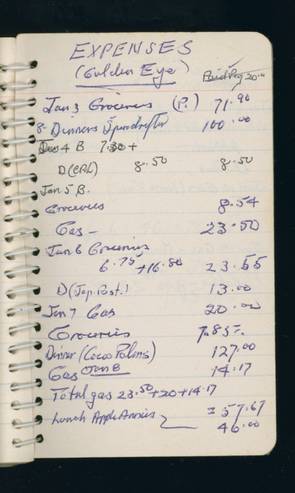 EXPENSES
(Golden Eye)
Jan 3 Groceries (P.) 71.90
8 Dinners Spindrifter 100.00
4 B 7.30+
D (CRL) 8.50 8.50
Jan 5 B.
Groceries 8.54
Gas - 23.50
Jan 6 Groceries
6.75 + 16.80 23.55
D (Jap. Rest.) 13.00
Jan 7 Gas 20.00
Groceries 7.85
Dinner (Coco Palms) 127.00
Gas Jan 8 14.17
Total gas 23.50+20+14.17
= 57.67
Lunch Apple Annies 46.00